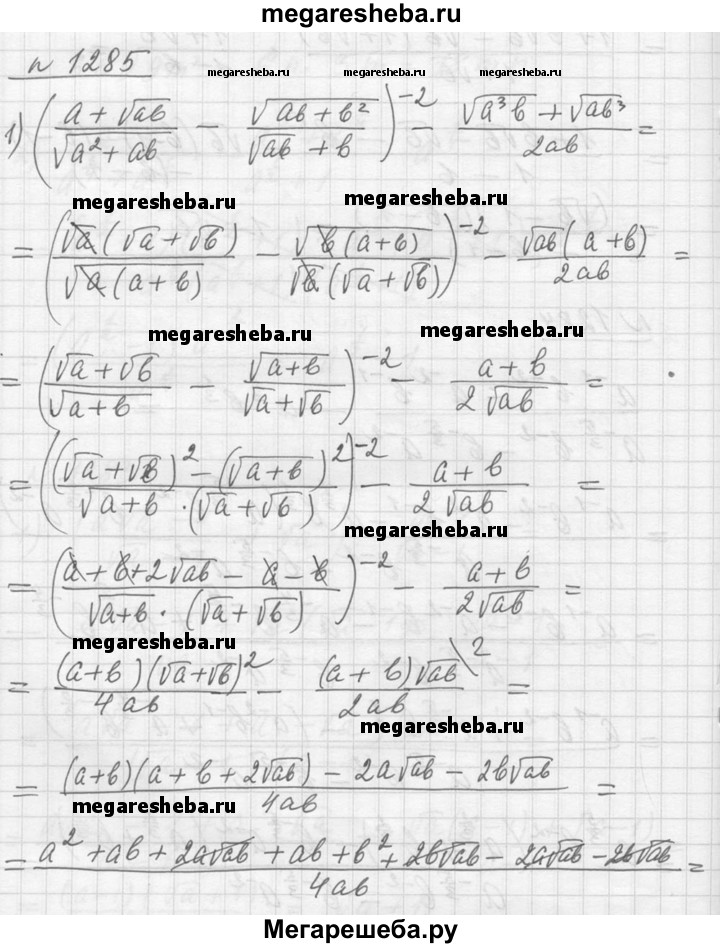 megaresheba.ru
n 1285
megaresheba.ru megaresheba.ru megaresheba.ru
1) ((a + √ab)/(√(a² + ab)) − (√(ab + b²))/(√ab + b))^(-2) − (√(a³b) + √(ab³))/(2ab) =
megaresheba.ru megaresheba.ru
= ((√a(√a + √b))/(√(a(a + b))) − (√(b(a + b)))/(√b(√a + √b)))^(-2) − (√ab(a + b))/(2ab) =
megaresheba.ru megaresheba.ru
= ((√a + √b)/(√(a + b)) − (√(a + b))/(√a + √b))^(-2) − (a + b)/(2√ab) =
= (((√a + √b)² − (√(a + b))²)/(√(a + b) · (√a + √b)))^(-2) − (a + b)/(2√ab) =
megaresheba.ru
= ((a + b + 2√ab − a − b)/(√(a + b) · (√a + √b)))^(-2) − (a + b)/(2√ab) =
megaresheba.ru
= ((a + b)(√a + √b)²)/(4ab) − ((a + b)√ab\2)/(2ab) =
megaresheba.ru
= ((a + b)(a + b + 2√ab) − 2a√ab − 2b√ab)/(4ab) =
megaresheba.ru
= (a² + ab + 2a√ab + ab + b² + 2b√ab − 2a√ab − 2b√ab)/(4ab) =
Мегарешеба.ру